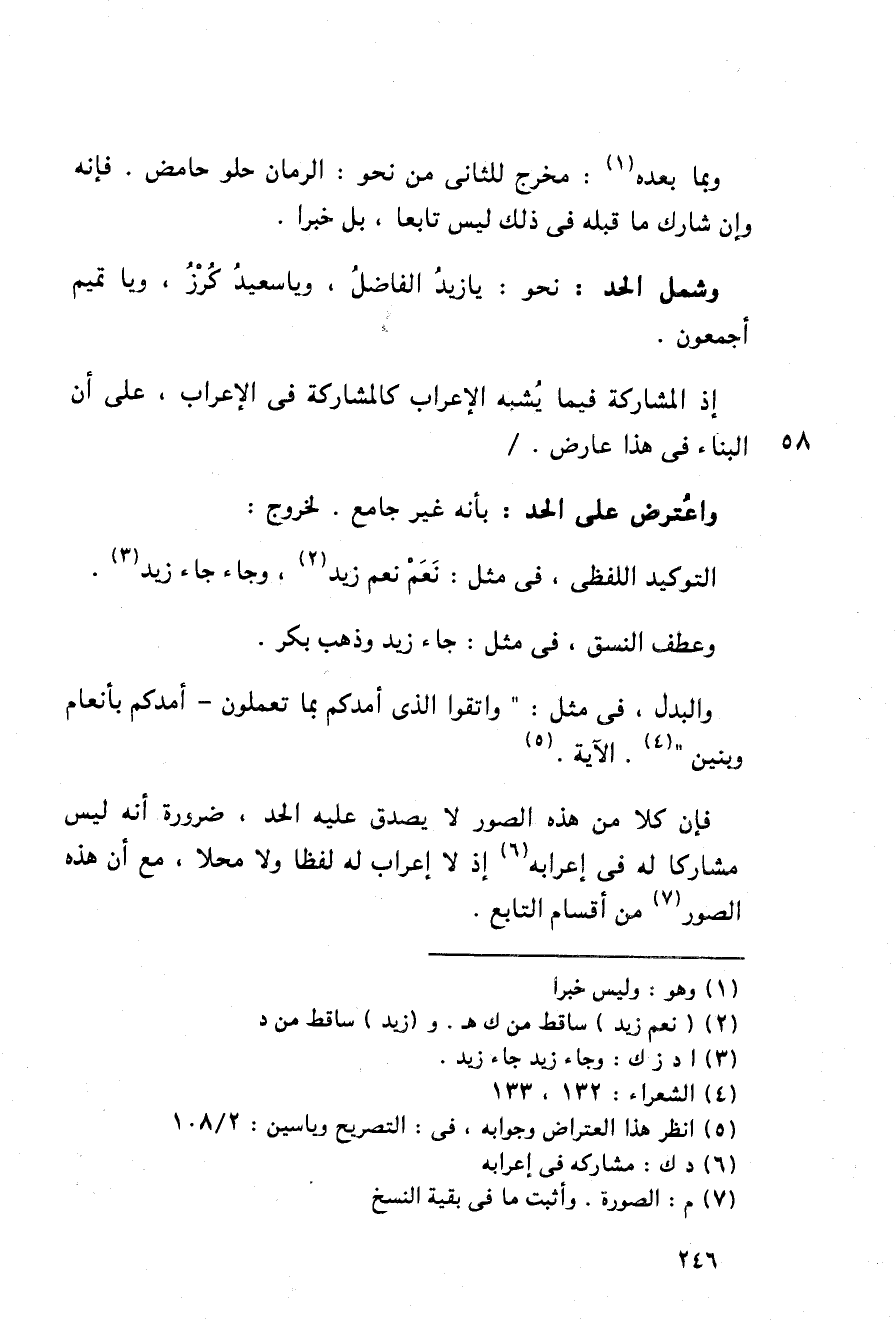 وبما بعده(١) : مخرج للثانى من نحو : الرمان حلو حامض . فإنه
وإن شارك ما قبله فى ذلك ليس تابعا ، بل خبرا .
وشمل الحد : نحو : يازيدُ الفاضلُ ، وياسعيدُ كُرْزُ ، ويا تميم
أجمعون .
إذ المشاركة فيما يُشبه الإعراب كالمشاركة فى الإعراب ، على أن
٥٨ البناء فى هذا عارض . /
واعتُرض على الحد : بأنه غير جامع . لخروج :
التوكيد اللفظى ، فى مثل : نَعَمْ نعم زيد(٢) ، وجاء جاء زيد(٣) .
وعطف النسق ، فى مثل : جاء زيد وذهب بكر .
والبدل ، فى مثل : " واتقوا الذى أمدكم بما تعملون – أمدكم بأنعام
وبنين "(٤) . الآية .(٥)
فإن كلا من هذه الصور لا يصدق عليه الحد ، ضرورة أنه ليس
مشاركا له فى إعرابه(٦) إذ لا إعراب له لفظا ولا محلا ، مع أن هذه
الصور(٧) من أقسام التابع .
(١) وهو : وليس خبرا
(٢) ( نعم زيد ) ساقط من ك هـ . و (زيد ) ساقط من د
(٣) ا د ز ك : وجاء زيد جاء زيد .
(٤) الشعراء : ١٣٢ ، ١٣٣
(٥) انظر هذا العتراض وجوابه ، فى : التصريح وياسين : ١٠٨/٢
(٦) د ك : مشاركه فى إعرابه
(٧) م : الصورة . وأثبت ما فى بقية النسخ
٢٤٦